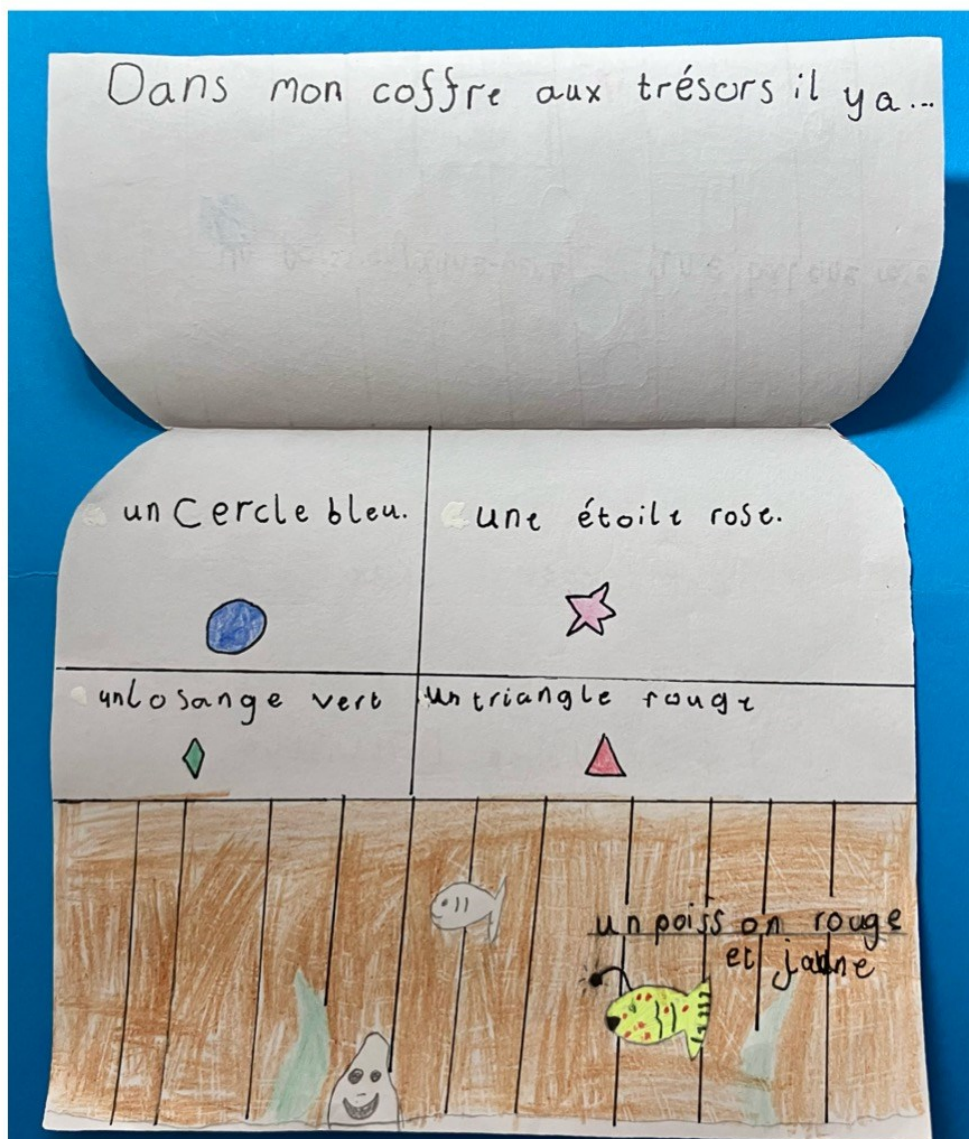 Dans mon coffre aux trésors il y a...
un Cercle bleu.
une étoile rose.
un losange vert
un triangle rouge
un poisson rouge
et jaune